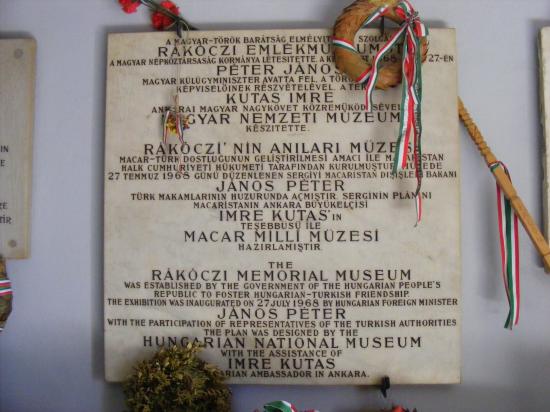 A MAGYAR-TÖRÖK BARÁTSÁG ELMÉLYÍT
SZOLG
RÁKÓCZI EMLÉKM
A MAGYAR NÉPKÖZTÁRSASÁG KORMÁNYA LÉTESÍTETTE. A 27-ÉN
PÉTER JÁNOS
MAGYAR KÜLÜGYMINISZTER AVATTA FEL, A TÖR
KÉPVISELŐINEK RÉSZVÉTELÉVEL. A TER
KUTAS IMRE
ANKARAI MAGYAR NAGYKÖVET KÖZREMŰKÖDÉSÉVEL
MAGYAR NEMZETI MÚZEUM
KÉSZITETTE.
RÁKÓCZİ'NİN ANILARI MÜZES
MACAR-TÜRK DOSTLUGUNUN GELIŞTIRILMESI AMACI ILE
HALK CUMHURİYETİ HÜKUMETİ TARAFINDAN KURULMUŞTUR
27 TEMMUZ 1968 GÜNÜ DÜZENLENEN SERGİYİ MACARİSTAN DIŞİŞLERİ BAKANI
JÁNOS PÉTER
TÜRK MAKAMLARININ HUZURUNDA AÇMIŞTIR. SERGİNİN PLANINI
MACARİSTANIN ANKARA BÜYÜKELÇİSİ
IMRE KUTAS'IN
TEŞEBBÜSÜ İLE
MACAR MİLLÎ MÜZESİ
HAZIRLAMIŞTIR.
THE
RÁKÓCZI MEMORIAL MUSEUM
WAS ESTABLISHED BY THE GOVERNMENT OF THE HUNGARIAN PEOPLE'S
REPUBLIC TO FOSTER HUNGARIAN-TURKISH FRIENDSHIP.
THE EXHIBITION WAS INAUGURATED ON 27 JULY 1968 BY HUNGARIAN FOREIGN MINISTER
JÁNOS PÉTER
WITH THE PARTICIPATION OF REPRESENTATIVES OF THE TURKISH AUTHORITIES
THE PLAN WAS DESIGNED BY THE
HUNGARIAN NATIONAL MUSEUM
WITH THE ASSISTANCE OF
IMRE KUTAS
ARIAN AMBASSADOR IN ANKARA.